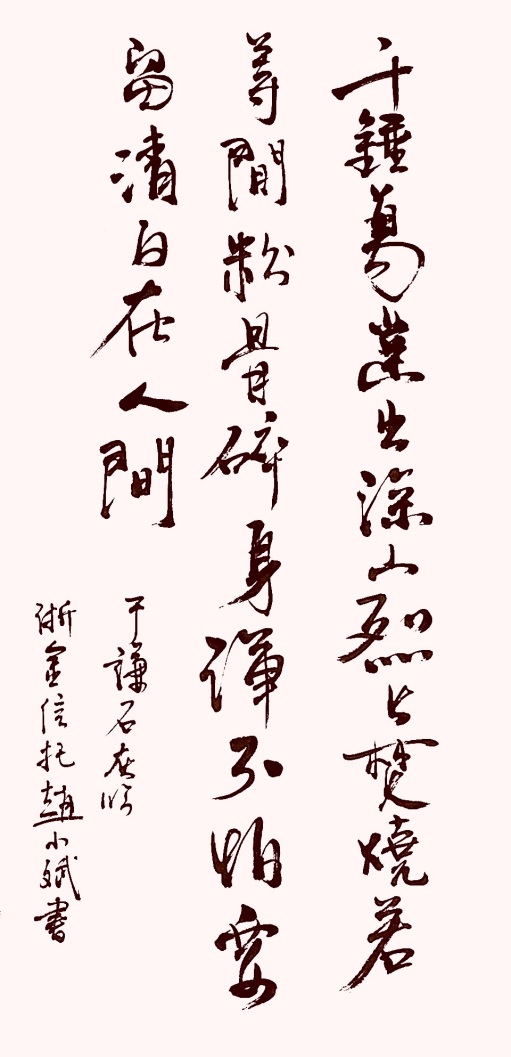 千錘萬鑿出深山烈火焚燒若
等間粉骨碎身諢不怕要
留清白在人間
于謙石灰吟
浙金信托趙小斌書